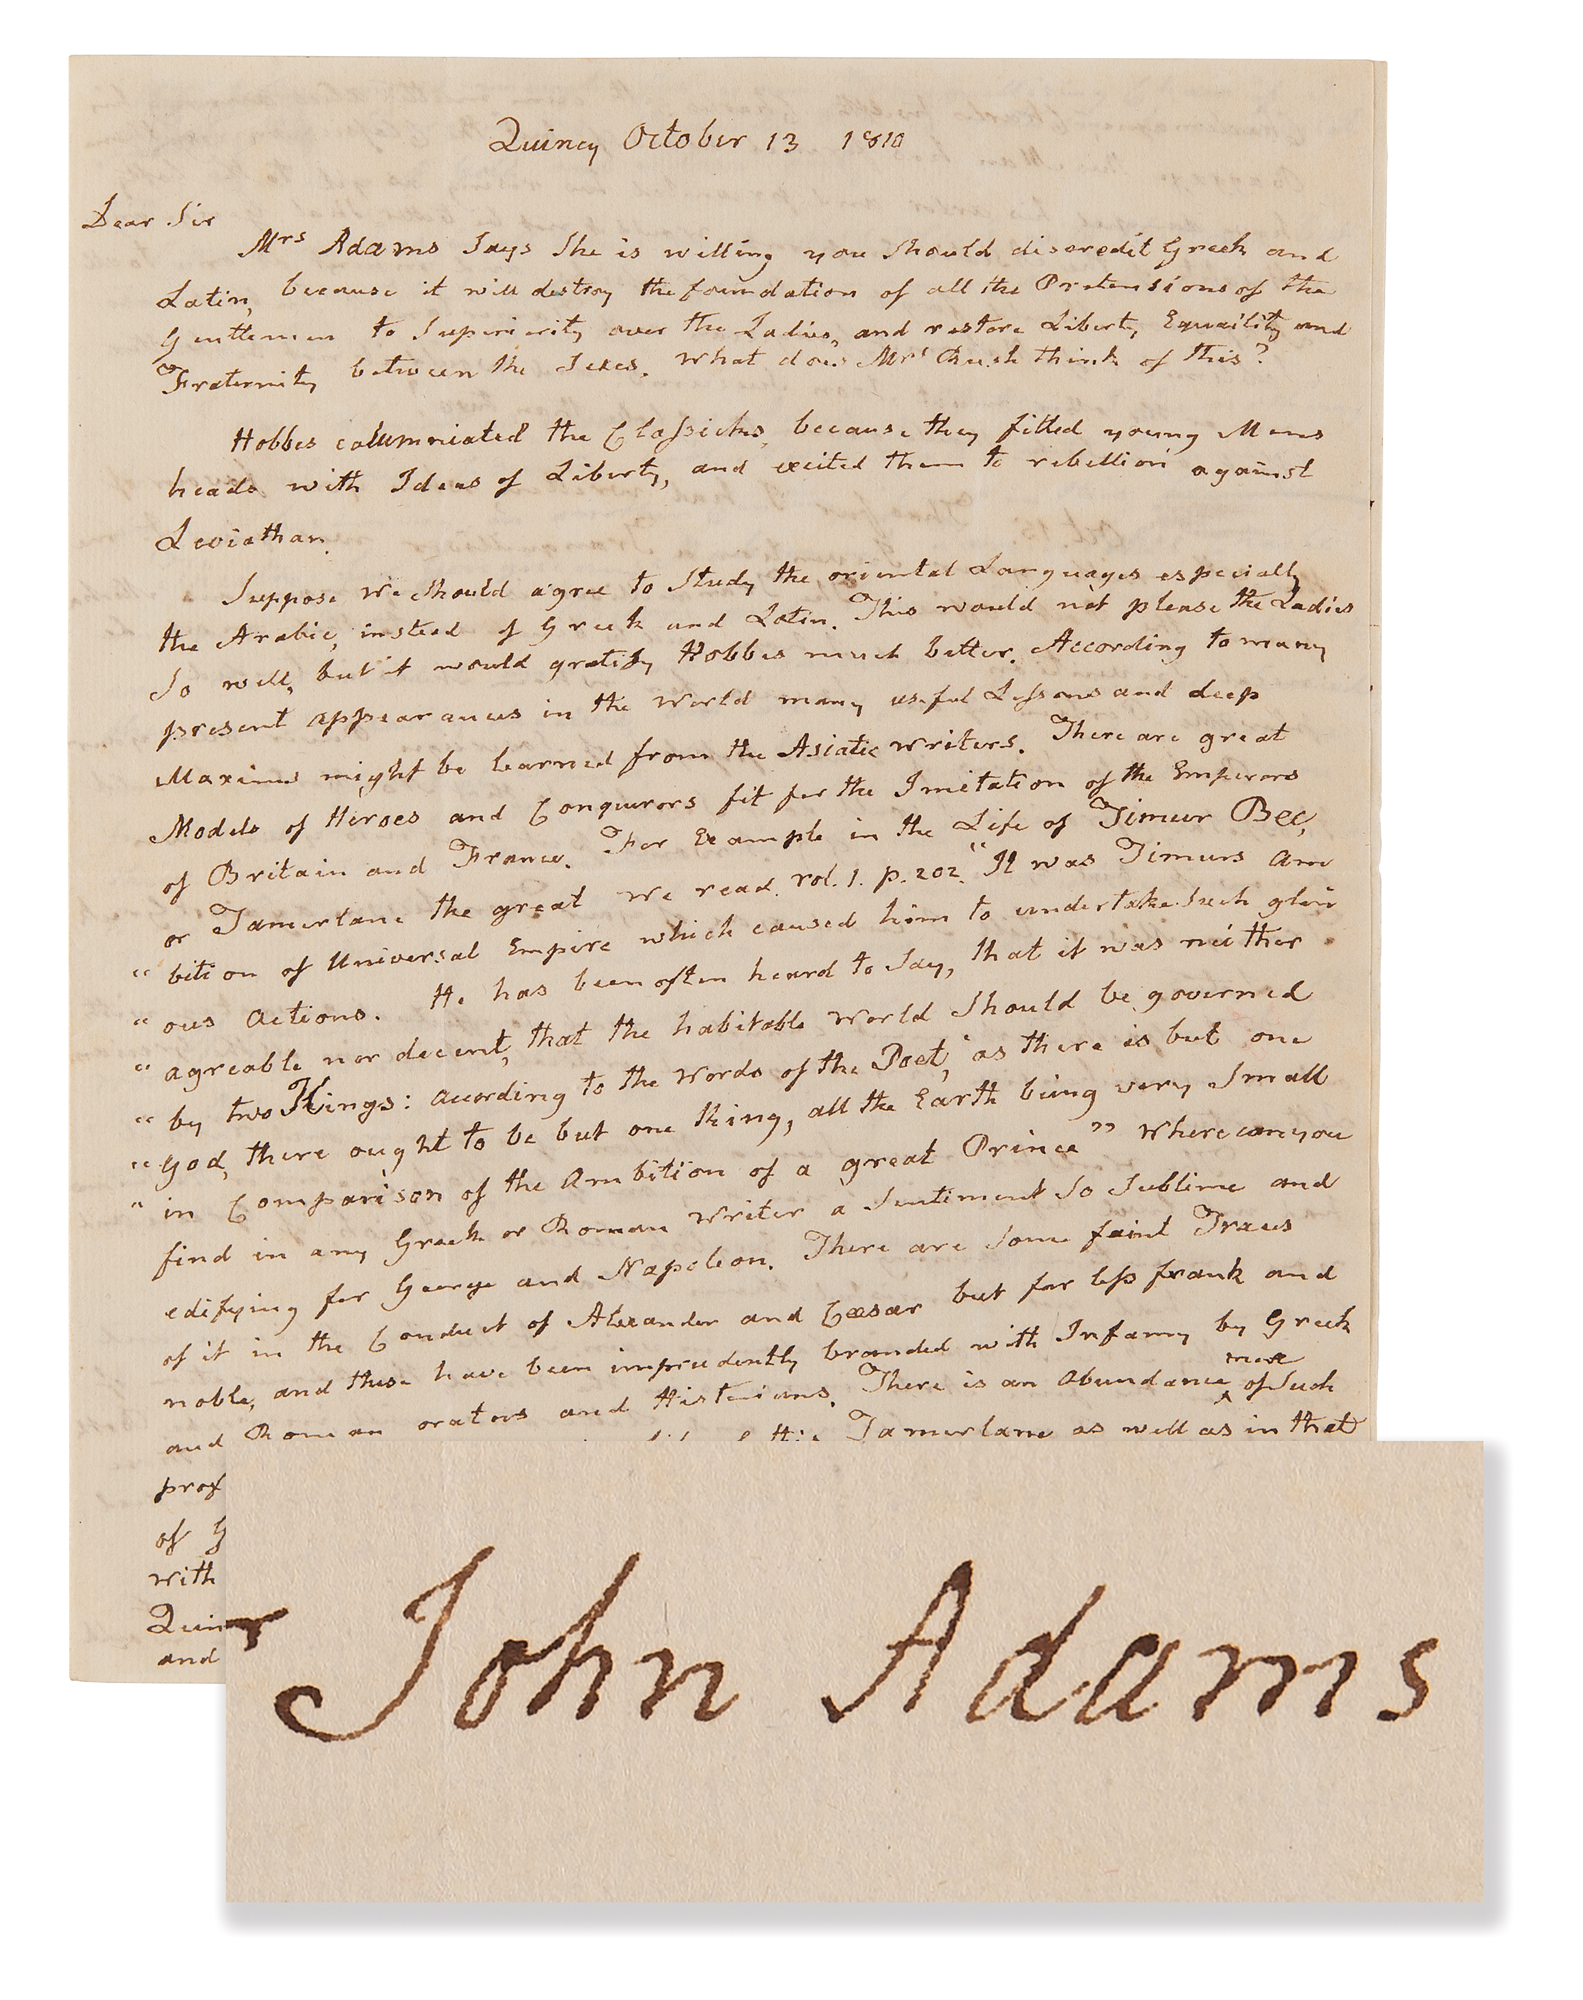 Quincy October 13 1810
Dear Sir
Mrs Adams Says She is willing you Should discredit Greek and
Latin, because it will destroy the foundation of all the Pretensions of the
Gentlemen to Superiority over the Ladies, and restore Liberty, Equality and
Fraternity between the Sexes. What does Mrs Rush think of this?
Hobbes calumniated the Classicks, because they filled young Mens
heads with Ideas of Liberty, and excited them to rebellion against
Leviathan.
Suppose We Should agree to Study the oriental Languages especially
the Arabic, instead of Greek and Latin. This would not please the Ladies
So well, but it would gratify Hobbes much better. According to many
present appearances in the World many useful Lessons and deep
Maxims might be learned from the Asiatic writers. There are great
Models of Heroes and Conquerors fit for the Imitation of the Emperors
of Britain and France. For Example in the Life of Timur Bec,
or Tamerlane the great We read vol. 1. p. 202. "It was Timurs Am
" bition of Universal Empire which caused him to undertake Such glori
" ous Actions. He has been often heard to Say, that it was neither
" agreable nor decent, that the habitable World Should be governed
" by two Kings: according to the Words of the Poet, as there is but one
" God, there ought to be but one King, all the Earth being very Small
" in Comparison of the Ambition of a great Prince" Where can you
find in any Greek or Roman Writer a Sentiment So Sublime and
edifying for George and Napoleon. There are Some faint Traces
of it in the Conduct of Alexander and Cæsar but far less frank and
noble, and these have been imprudently branded with Infamy by Greek
and Roman orators and Historians. There is an Abundance more of Such
Tamerlane as well as in that
prof
of G
with
Quin
and
John Adams